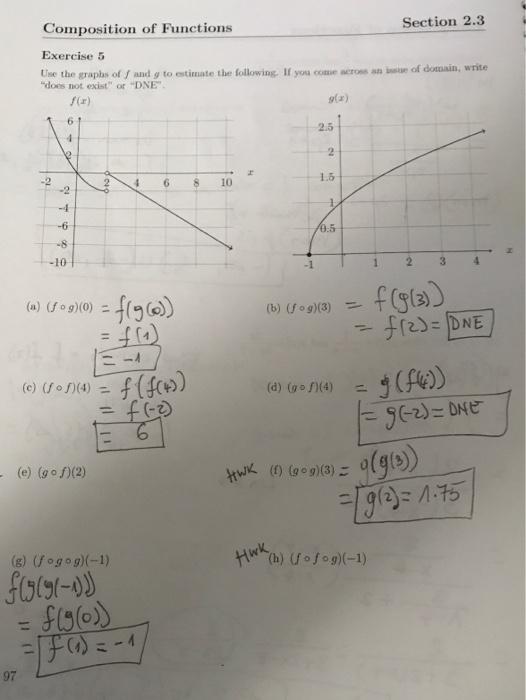 Composition of Functions
Section 2.3
Exercise 5
Use the graphs of f and g to estimate the following. If you come across an issue of domain, write
"does not exist" or "DNE".
f(x)
6
4
2
-2 2 4 6 8 10 x
-2
-4
-6
-8
-10
g(x)
2.5
2
1.5
1
0.5
-1 1 2 3 4 x
(a) (f∘g)(0) = f(g(0))
= f(1)
= -1
(b) (f∘g)(3) = f(g(3))
= f(2) = DNE
(c) (f∘f)(4) = f(f(4))
= f(-2)
= 6
(d) (g∘f)(4) = g(f(4))
= g(-2) = DNE
(e) (g∘f)(2)
HWK (f) (g∘g)(3) = g(g(3))
= g(2) = 1.75
(g) (f∘g∘g)(-1)
f(g(g(-1)))
= f(g(0))
= f(1) = -1
HWK (h) (f∘f∘g)(-1)
97